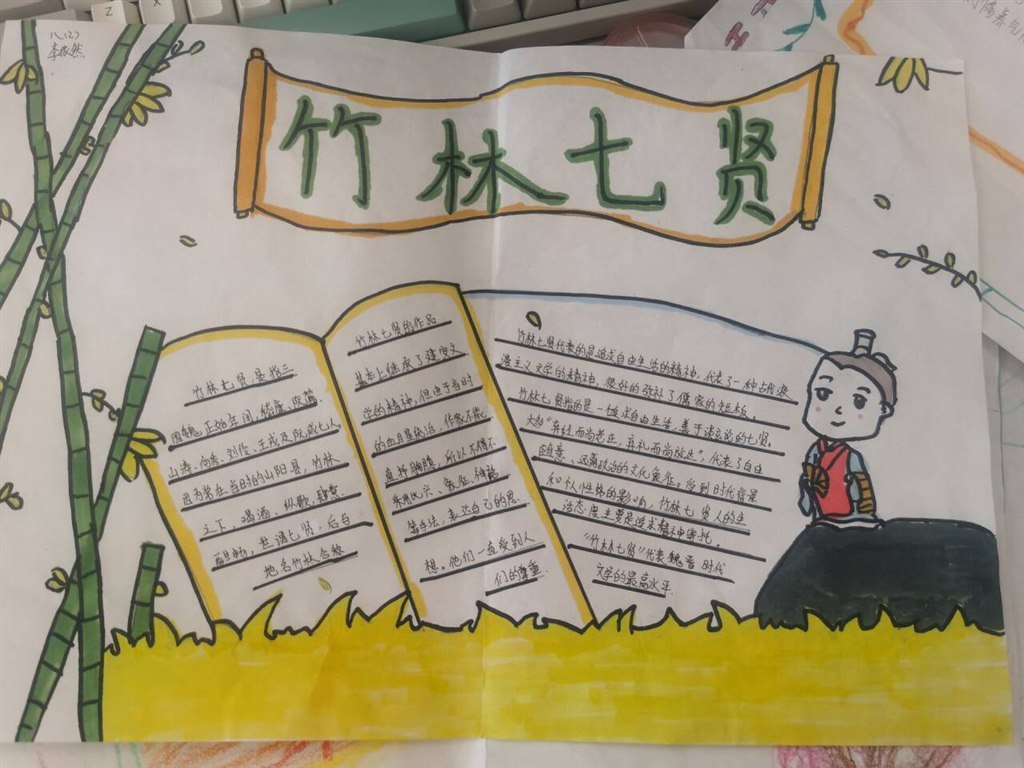 八(2)
李依然
竹林七贤
竹林七贤是指三
国魏正始年间,嵇康、阮籍
山涛、向秀、刘伶、王戎及阮咸七人
因为常在当时的山阳县,竹林
之下,喝酒、纵歌,肆意
酣畅,世谓七贤,后与
地名竹林合称
竹林七贤的作品
基本上继承了建安文
学的精神,但由于当时
的血腥统治,作家不能
直抒胸臆,所以不得不
采用比兴、象征、神话
等手法,表达自己的思
想。他们一直受到人
们的尊重
竹林七贤代表的是追求自由生活的精神,代表了一种占浪
漫主义文学的精神,很好的弥补了儒家的短板。
竹林七贤指的是一雄求自由生活,善于谈玄论的七贤。
大约“弃经而尚老庄,弃礼而尚放达”,代表了自由
随意、远离政治的文化象征。受到时代背景
和个人性格的影响,竹林七贤人的生
活态度主要是追求精神寄托。
“竹林七贤”代表魏晋时代
文学的最高水平